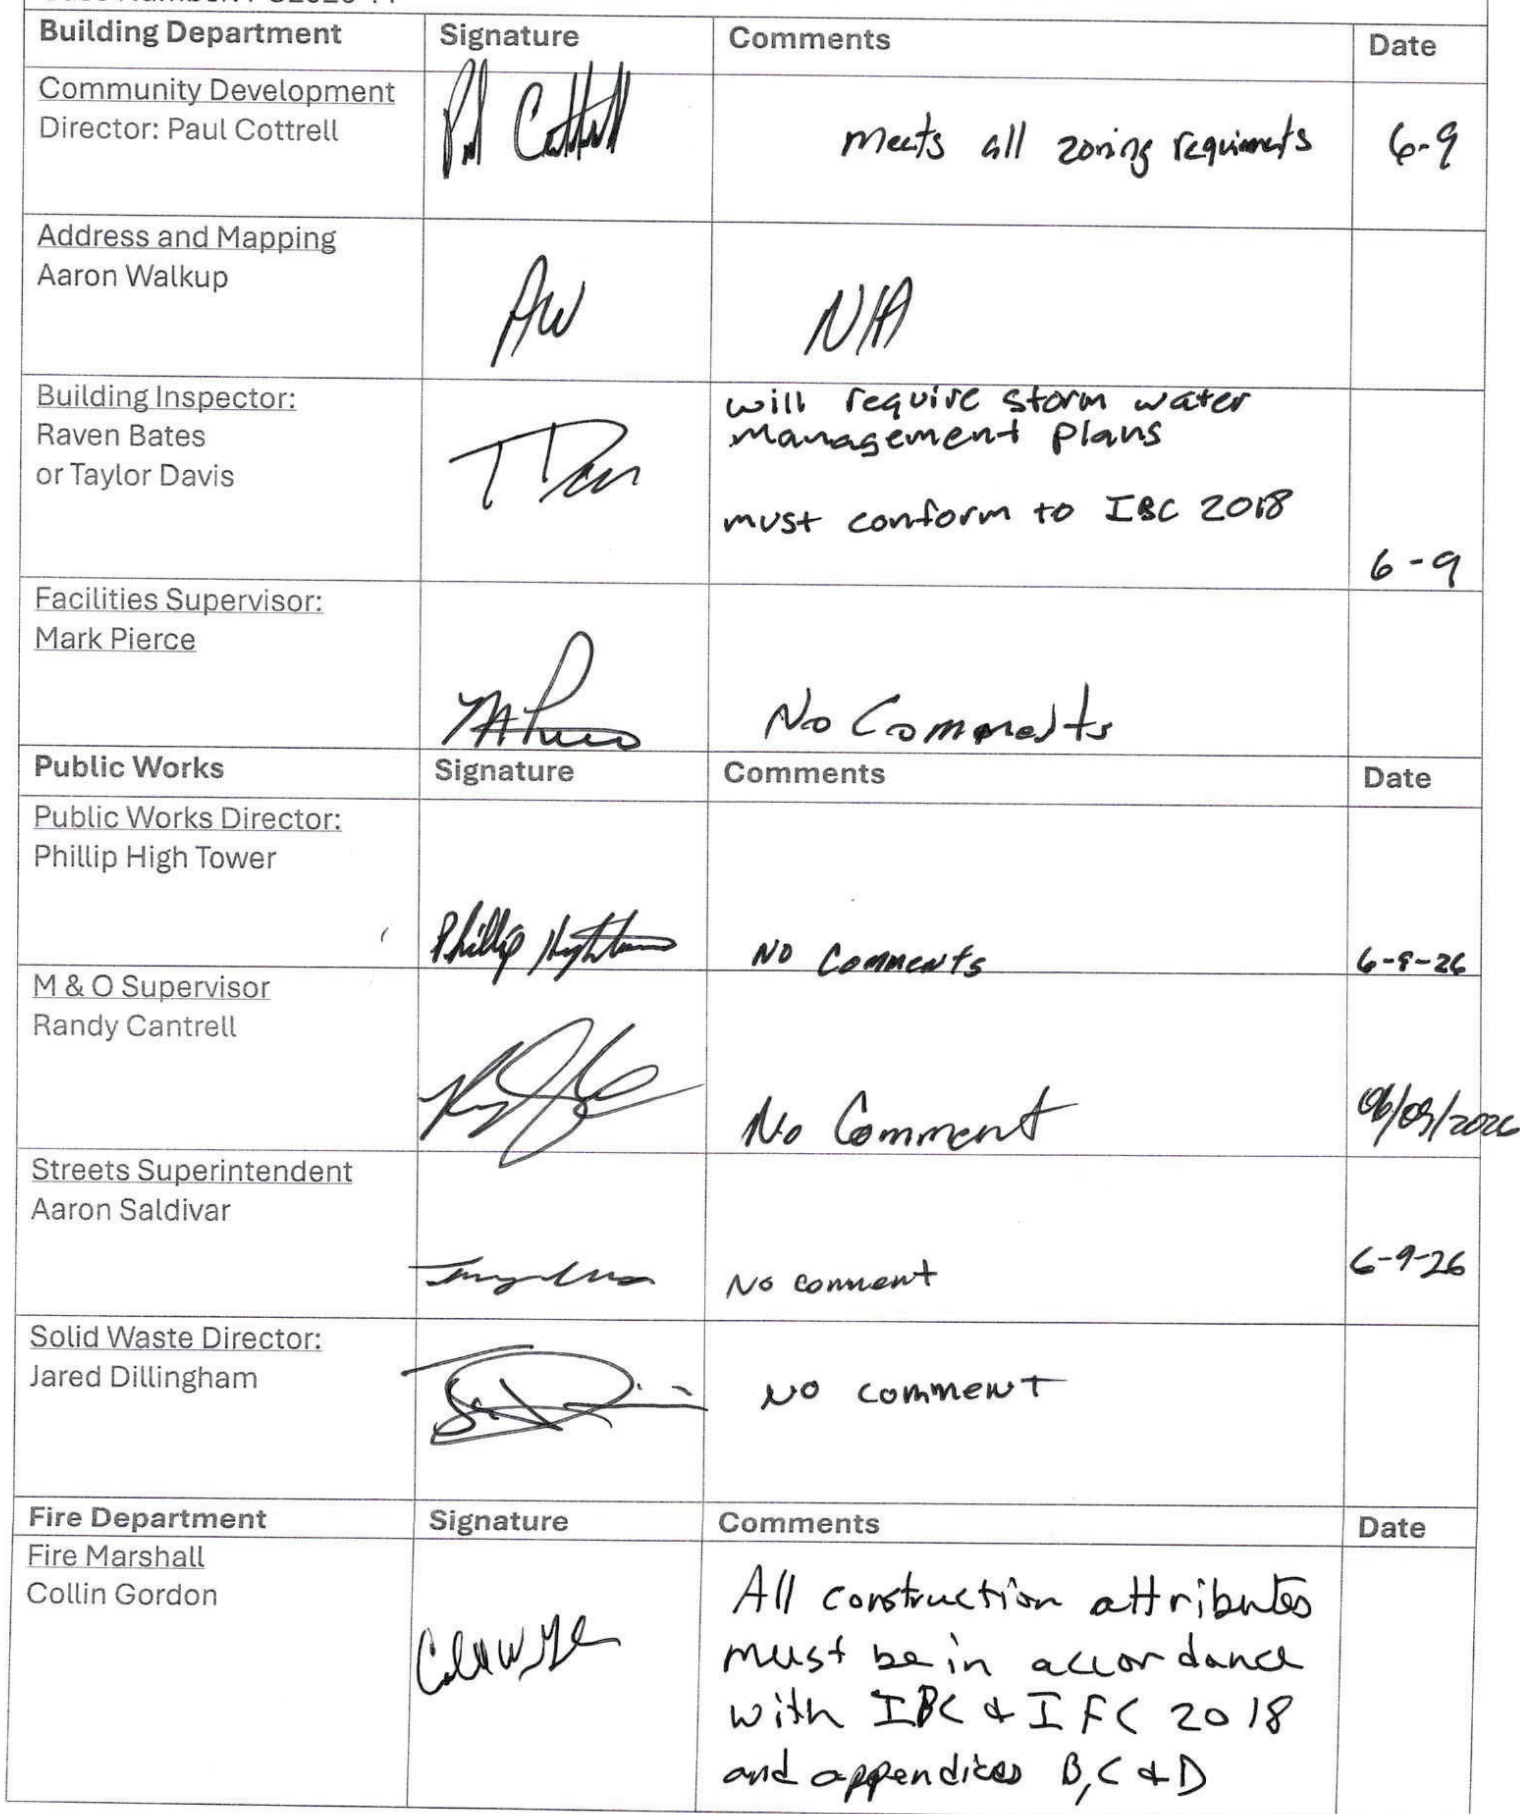 Building Department Signature Comments Date
Community Development
Director: Paul Cottrell
Paul Cottrell
Meets all zoning requiments 6-9
Address and Mapping
Aaron Walkup
AW N/A
Building Inspector:
Raven Bates
or Taylor Davis
will require storm water
management plans
must conform to IBC 2018
6-9
Facilities Supervisor:
Mark Pierce
No Comments
Public Works Signature Comments Date
Public Works Director:
Phillip High Tower
Phillip Hightower No Comments 6-9-26
M & O Supervisor
Randy Cantrell
No Comment 06/09/2026
Streets Superintendent
Aaron Saldivar
No comment 6-9-26
Solid Waste Director:
Jared Dillingham
No comment
Fire Department Signature Comments Date
Fire Marshall
Collin Gordon
All construction attributes
must be in accordance
with IBC & IFC 2018
and appendices B, C & D